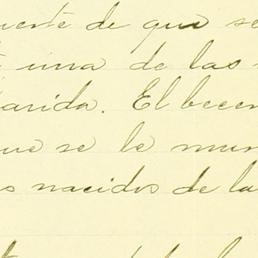 uerte de que se
una de las
parida. El becer
que se le mur
s nacidos de la